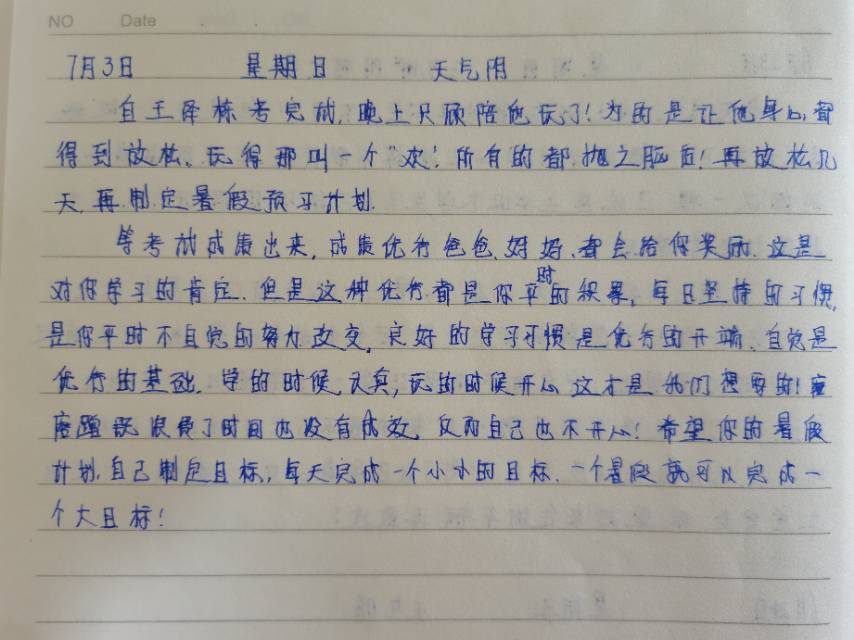 NO Date
7月3日 星期日 天气阴
自王泽栋考完试,晚上只顾陪他玩了!为的是让他身心都
得到放松、玩得那叫一个"欢",所有的都抛之脑后!再放松几
天再制定暑假预习计划.
等考试成质出来,成质优秀爸爸、妈妈、都会给你奖励.这是
对你学习的肯定.但是这种优秀都是你平时的积累,每日坚持的习惯,
是你平时不自觉的努力改变,良好的学习习惯是优秀的开端、自觉是
优秀的基础.学的时候认真,玩的时候开心这才是我们想要的!
既浪费了时间也没有成效,反而自己也不开心!希望你的暑假
计划,自己制定目标,每天完成一个小小的目标.一个暑假就可以完成一
个大目标!